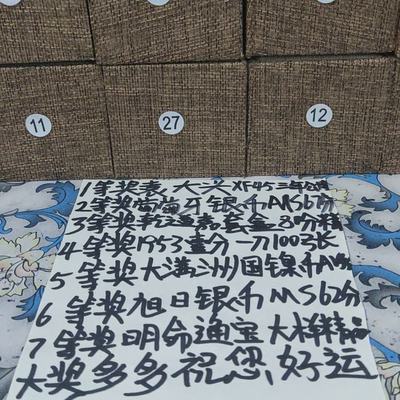 11
27
12
1等奖袁大头XF45三年
2等奖葡萄牙银币MS67分
3等奖套盒80分
4等奖1953壹分一刀100张
5等奖大满洲国镍币
6等奖旭日银币MS62分
7等奖明命通宝大样精品
大奖多多祝您好运